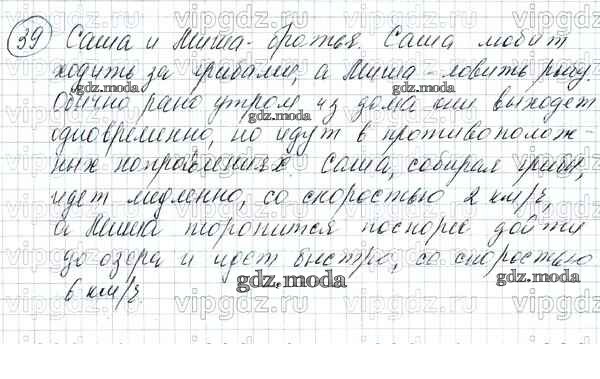 39 Саша и Миша - братья. Саша любит
ходить за грибами, а Миша - ловить рыбу.
Обычно рано утром из дома они выходет
одновременно, но идут в противополож-
ных направлениях. Саша, собирая грибы,
идет медленно, со скоростью 2 км/ч,
а Миша торопится поскорее дойти
до озера и идет быстро, со скоростью
6 км/ч.
gdz.moda
gdz.moda
gdz.moda
gdz.moda
gdz.moda
gdz.moda
vipgdz.com